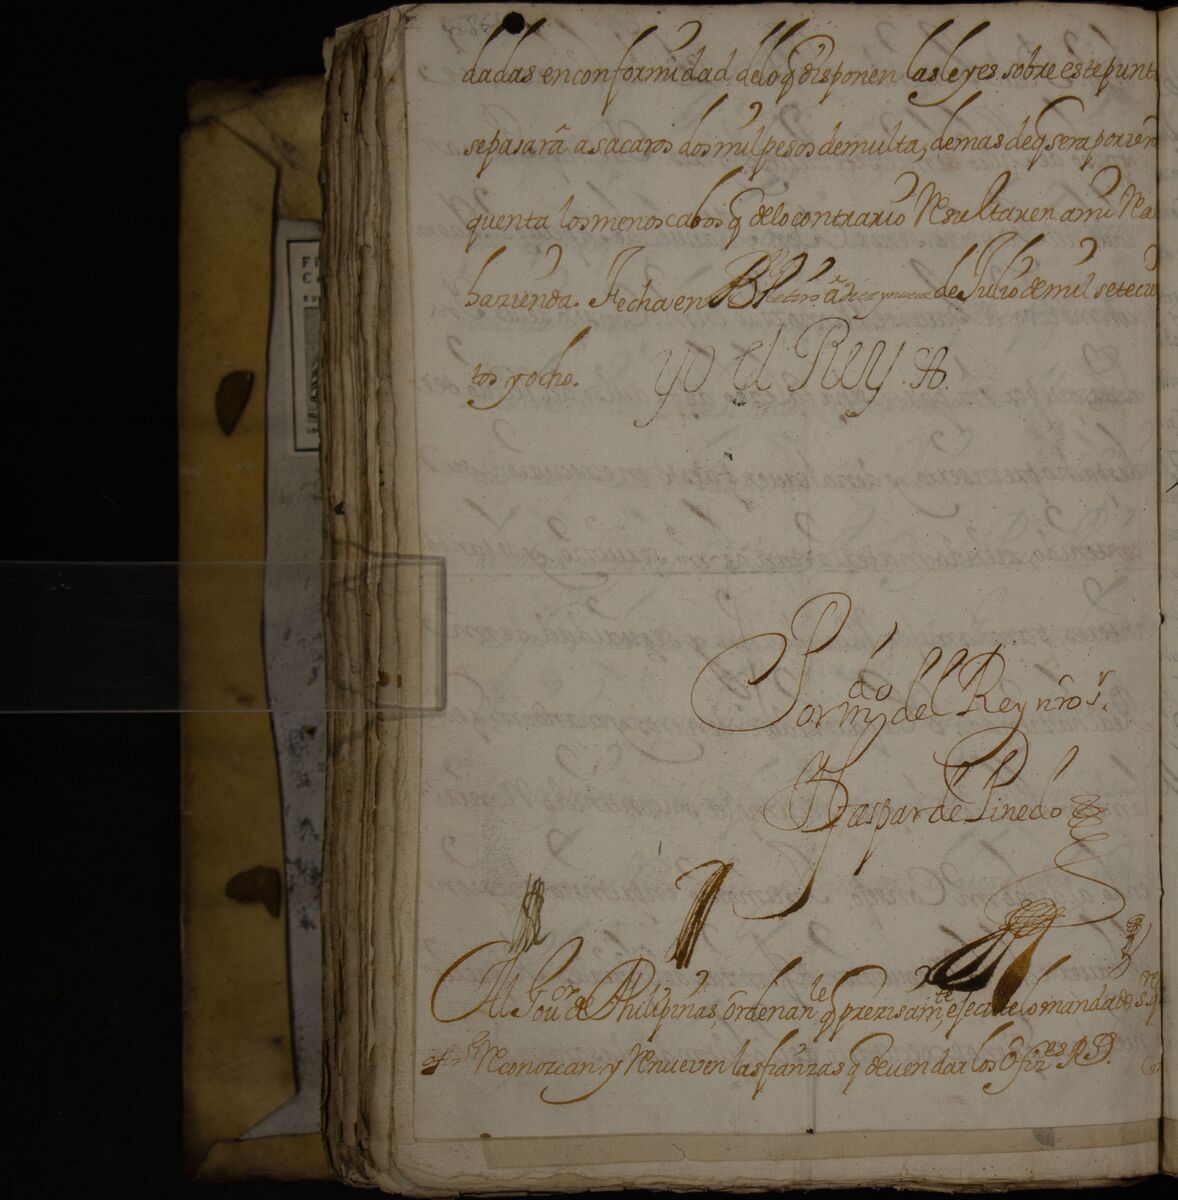 dadas en conformidad de lo q̃ disponen las leyes sobre este punt
se pasarã a sacaros dos mil pesos de multa, demas de q̃ sera por vr̃a
quenta los menoscabos q̃ de lo contrario Resultaren a mi Rea
hazienda. Fecha en Bn Retiro â diez y nueve de Julio de mil setecie
tos y ocho. yo el Rey
Por mdo del Rey nr̃o sr.
Gaspar de Pinedo
Al Gouor de Philipinas, ordenanle q̃ prezisamte execute lo mandado, sre q
Reconozcan, y Renueven las fianzas q̃ deven dar los ofizes Rs.